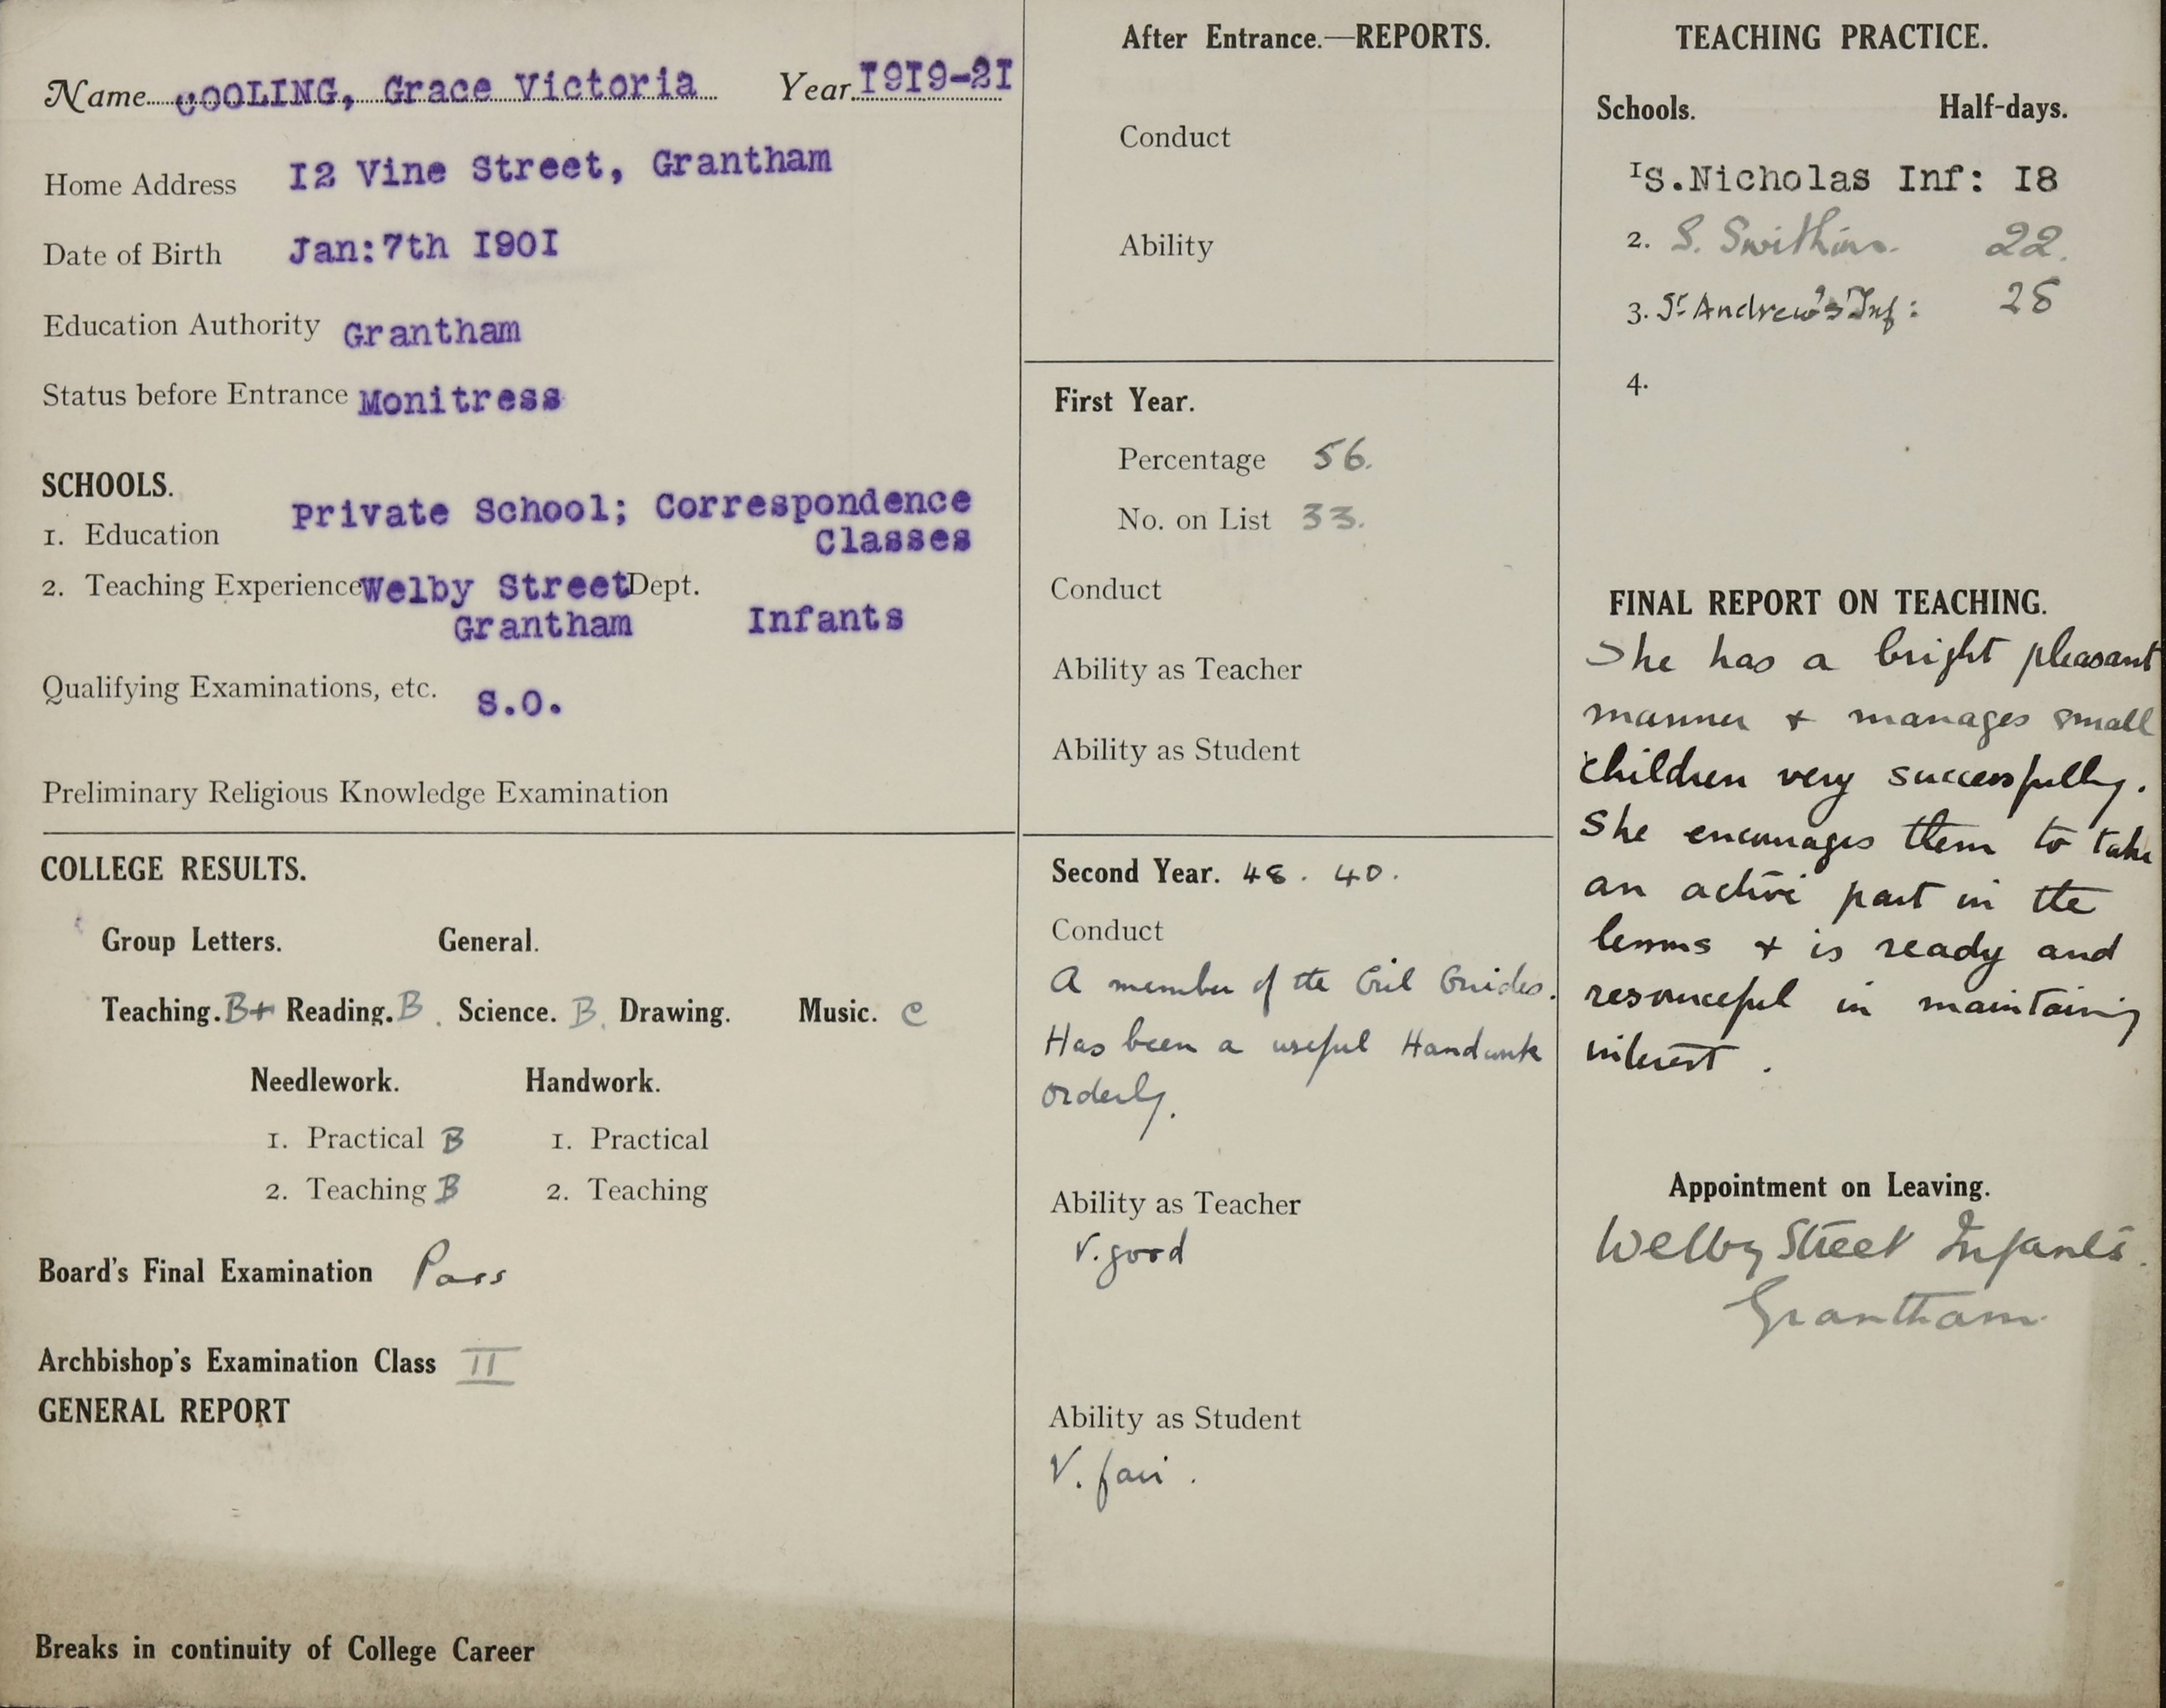 Name COOLING, Grace Victoria Year 1919-21
Home Address 12 Vine Street, Grantham
Date of Birth Jan:7th 1901
Education Authority Grantham
Status before Entrance Monitress
SCHOOLS.
1. Education Private School; Correspondence
Classes
2. Teaching Experience Welby Street Dept.
Grantham Infants
Qualifying Examinations, etc. S.O.
Preliminary Religious Knowledge Examination
COLLEGE RESULTS.
Group Letters. General.
Teaching. B+ Reading. B. Science. B. Drawing. Music. C
Needlework. Handwork.
1. Practical B 1. Practical
2. Teaching B 2. Teaching
Board's Final Examination Pass
Archbishop's Examination Class II
GENERAL REPORT
Breaks in continuity of College Career
After Entrance.—REPORTS.
Conduct
Ability
First Year.
Percentage 56.
No. on List 33.
Conduct
Ability as Teacher
Ability as Student
Second Year. 48. 40.
Conduct
A member of the Girl Guides.
Has been a useful Handwork
orderly.
Ability as Teacher
V. good
Ability as Student
V. fair.
TEACHING PRACTICE.
Schools. Half-days.
1 S.Nicholas Inf: 18
2. S. Swithins. 22.
3. St Andrew's Inf:
4.
FINAL REPORT ON TEACHING.
She has a bright pleasant
manner + manages small
children very successfully.
She encourages them to take
an active part in the
lessons + is ready and
resourceful in maintaining
interest.
Appointment on Leaving.
Welby Street Infants.
Grantham.